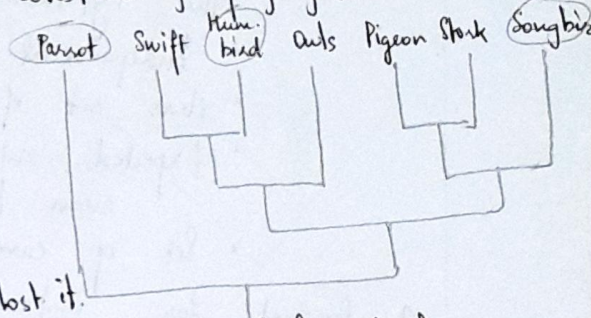 Parrot Swift Hum. bird Owls Pigeon Stork Songbi
lost it.